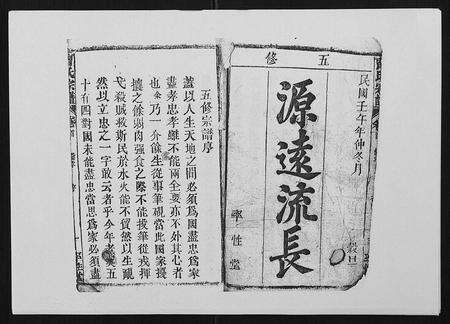 民國壬午年仲冬月
五修
源遠流長
率性堂
五修宗譜序
蓋以人生天地之間必須為國盡忠為家
盡孝忠孝雖不能兩全要亦不外其心者
也余乃一介儒生從事筆硯當此國家擾
攘之餘與肉強食之際不能投筆從戎揮
戈殺賊救斯民於水火能不貿然以生覥
然以立忠之一字敢云者乎今年老五
十有四對國未能盡忠當思為家必須盡